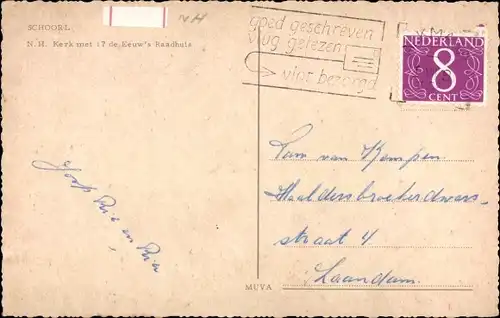 SCHOORL
N.H. Kerk met 17 de Eeuw's Raadhuis
NH
goed geschreven
vlug gelezen
vlot bezorgd
NEDERLAND
8
CENT
Fam van Kampen
straat 4
Zaandam.
MUVA